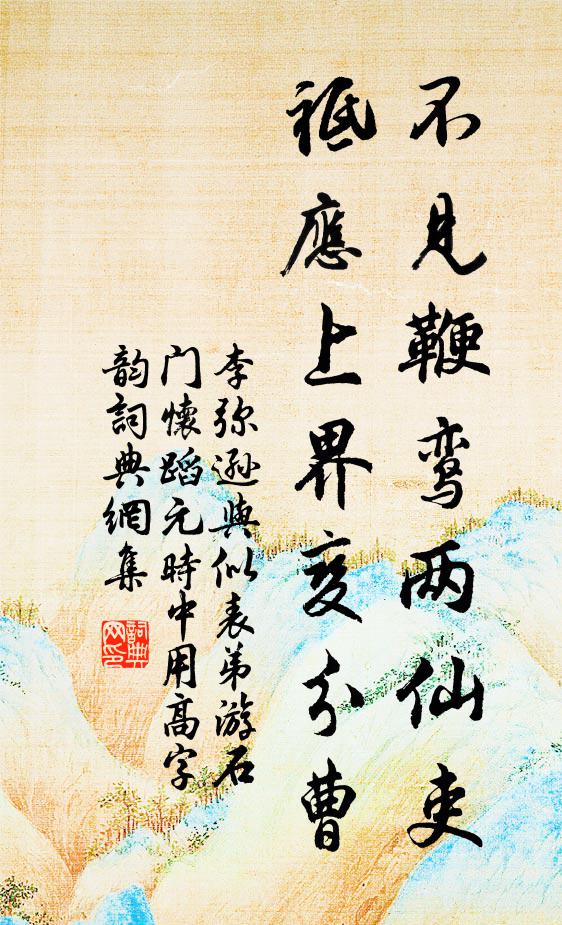 不見鞭鸾两仙吏
祗應上界变分曹
李弥逊與似表弟游石
门懷蹈元時中用高字
韵詞典網集
詞典网印